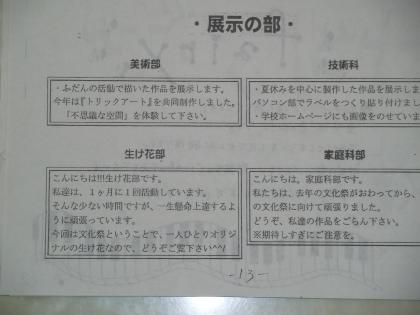 ・展示の部・
美術部
・ふだんの活動で描いた作品を展示します。
今年は『トリックアート』を共同制作しました。
「不思議な空間」を体験して下さい。
技術科
・夏休みを中心に製作した作品を展示しま
パソコン部でラベルをつくり貼り付けまし
・学校ホームページにも画像をのせていま
生け花部
こんにちは!!!生け花部です。
私達は、１ヶ月に１回活動しています。
そんな少ない時間ですが、一生懸命上達するよ
うに頑張っています。
今回は文化祭ということで、一人ひとりオリジ
ナルの生け花なので、どうぞご覧下さい^^/
家庭科部
こんにちは。家庭科部です。
私たちは、去年の文化祭がおわってから、
の文化祭に向けて頑張りました。
どうぞ、私達の作品をごらん下さい。
※期待しすぎにご注意を。
-13-